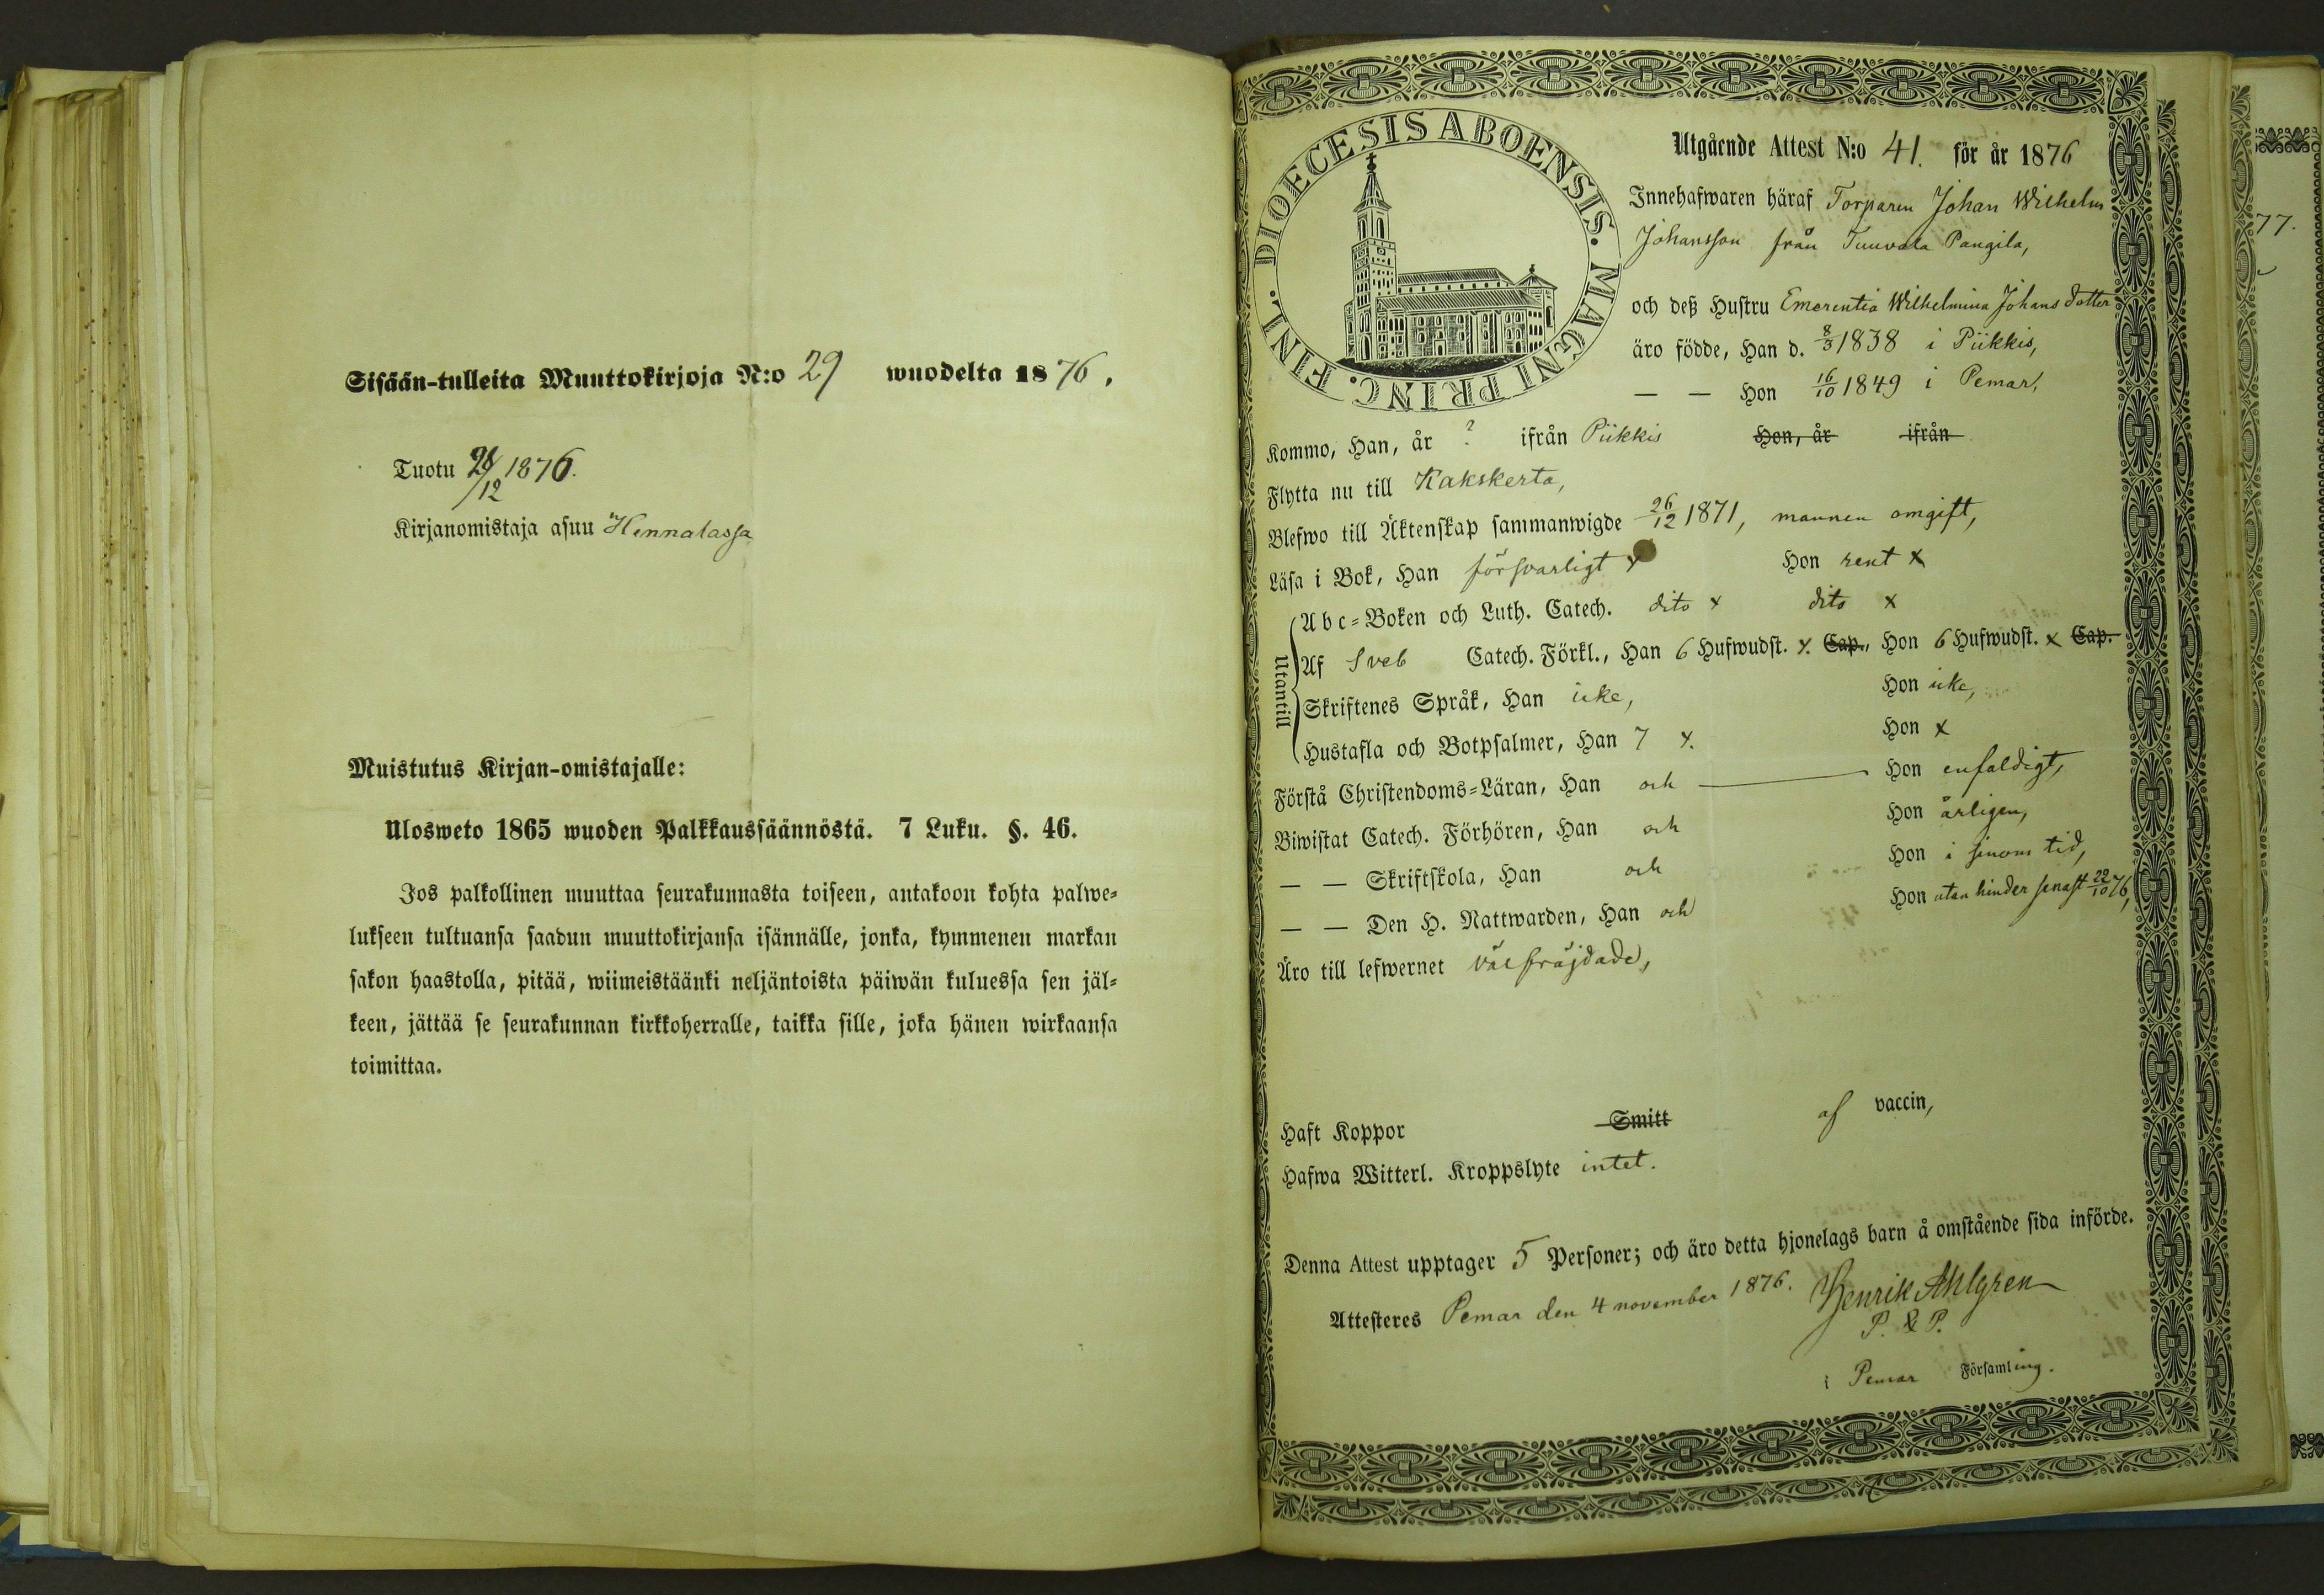 Sisään-tulleita Muuttokirjoja N:o 29 wuodelta 1876.
Tuotu 28/12 1876.
Kirjanomistaja asuu Hennalassa
Muistutus Kirjan-omistajalle:
Ulosweto 1865 wuoden Palkkaussäännöstä. 7 Luku. §. 46.
Jos palkollinen muuttaa seurakunnasta toiseen, antakoon kohta palwe=
lukseen tultuansa saadun muuttokirjansa isännälle, jonka, kymmenen markan
sakon haastolla, pitää, wiimeistäänki neljäntoista päiwän kuluessa sen jäl=
keen, jättää se seurakunnan kirkkoherralle, taikka sille, joka hänen wirkaansa
toimittaa.
DIOECESIS ABOENSIS. MAGNI PRINC. FINL.
Utgående Attest N:o 41. för år 1876
Innehafwaren häraf Torparen Johan Wilhelm
Johansson från Tuuvala Pangila,
och deß Hustru Emerentia Wilhelmina Johansdotter
äro födde, Han d. 8/3 1838 i Piikkis,
— — Hon 16/10 1849 i Pemar,
Kommo, Han, år ? ifrån Piikkis Hon, år ifrån
Flytta nu till Kakskerta,
Blefwo till Äktenskap sammanwigde 26/12 1871, mannen omgift,
Läsa i Bok, Han försvarligt x Hon rent x
Utantill
Abc=Boken och Luth. Catech. dito x dito x
Af Sveb Catech. Förkl., Han 6 Hufwudst. x. Cap., Hon 6 Hufwudst. x Cap.
Skriftenes Språk, Han icke, Hon icke,
Hustafla och Botpsalmer, Han 7 x. Hon x
Förstå Christendoms=Läran, Han och — Hon enfaldigt,
Biwistat Catech. Förhören, Han och Hon årligen,
— — Skriftskola, Han och Hon i sinom tid,
— — Den H. Nattwarden, Han och Hon utan hinder senast 22/10 76,
Äro till lefwernet väl fräjdade,
Haft Koppor Smitt af vaccin,
Hafwa Witterl. Kroppslyte intet.
Denna Attest upptager 5 Personer; och äro detta hjonelags barn å omstående sida införde.
Attesteres Pemar den 4 november 1876. Henrik Ahlgren
P. & P.
i Pemar Församling.
77.